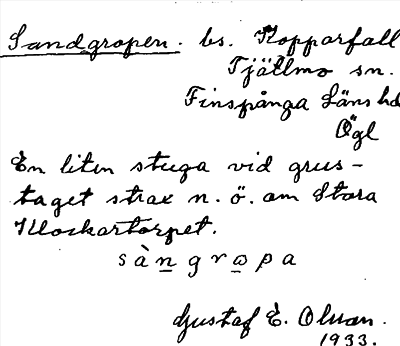 Sandgropen. bs. Kopparfall
Tjällmo sn.
Finspånga Läns hd
Ögl
En liten stuga vid grus-
taget strax n. ö. om Stora
Klockartorpet.
sàngropa
Gustaf E. Olsson.
1933.